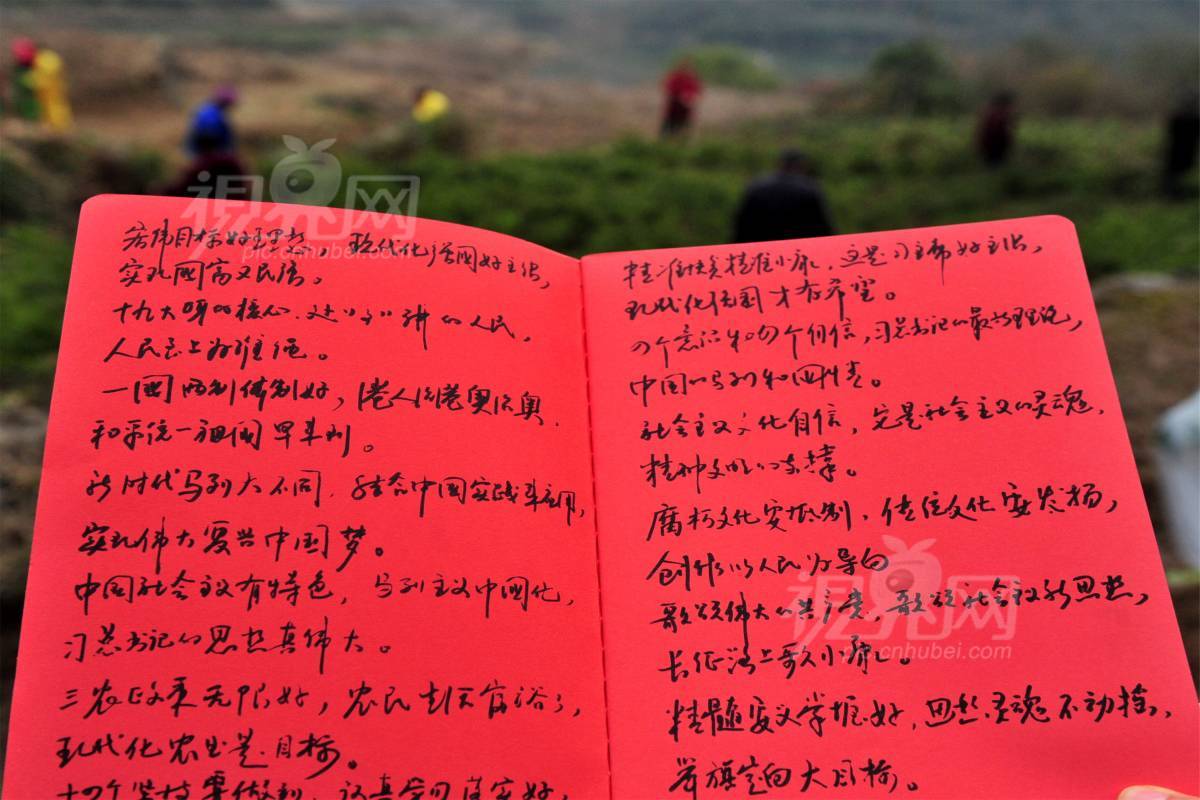 宏伟目标好理想，现代化治国好主张，
实现国富又民强。
十九大明的核心，还以习讲的人民，
人民至上为准绳。
一国两制体制好，港人治港奥治奥，
和平统一祖国早来到。
新时代马列大不同，结合中国实践来应用，
实现伟大复兴中国梦。
中国社会主义有特色，马列主义中国化，
习总书记的思想真伟大。
三农政策无限好，农民生活富裕了，
现代化农业是目标。
十四个坚持要做到，认真学习落实好，
精准扶贫精准小康，这是习主席好主张，
现代化强国才有希望。
四个意识和四个自信，习总书记的最新理论，
中国的马列和四件步。
社会主义文化自信，它是社会主义的灵魂，
精神文明的支撑。
腐朽文化要抵制，传统文化要发扬，
创作以人民为导向
歌颂伟大的共产党，歌颂社会主义新思想，
长征路上歌小康。
精髓要义掌握好，思想灵魂不动摇，
举旗定向大目标。
视界网
pic.cnhubei.com
视界网
pic.cnhubei.com